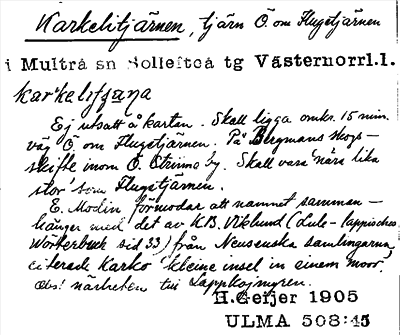 Karkelitjärnen, tjärn Ö. om Flugetjärnen
i Multrå sn Sollefteå tg Västernorrl.l.
Ej utsatt å kartan. Skall ligga omkr. 15 min.
väg Ö. om Flugetjärnen. På Bergmans skogs-
skifte inom Ö. Strinne by. Skall vara nära lika
stor som Flugetjärnen.
E. Modin förmodar att namnet samman-
hänger med det av K.B. Wiklund (Lule-lappisches
Wörterbuch sid 33) från Neusenska samlingarna
citerade Karko 'kleine insel in einem moor'.
Obs! närheten till Lappkojmyren.
H.Geijer 1905
ULMA 508:45